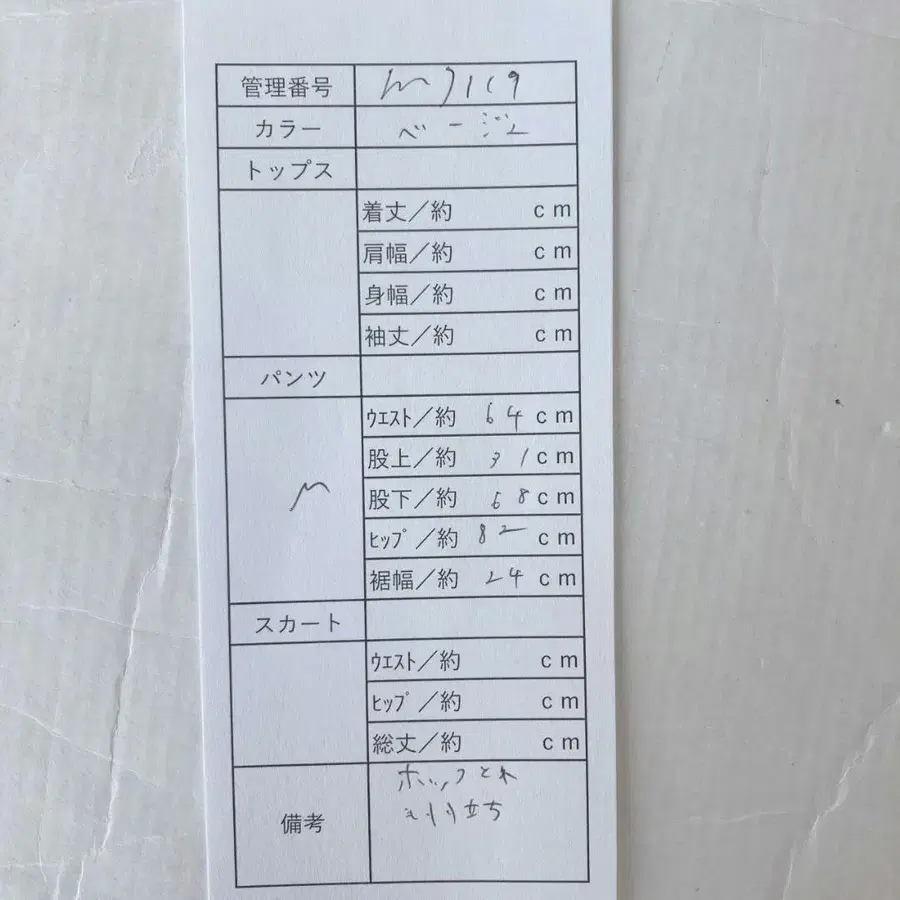 管理番号
カラー ベージュ
トップス
着丈／約 cm
肩幅／約 cm
身幅／約 cm
袖丈／約 cm
パンツ
ウエスト／約 64 cm
股上／約 31 cm
M 股下／約 68 cm
ヒップ／約 82 cm
裾幅／約 24 cm
スカート
ウエスト／約 cm
ヒップ／約 cm
総丈／約 cm
備考 ホックとれ
立ち